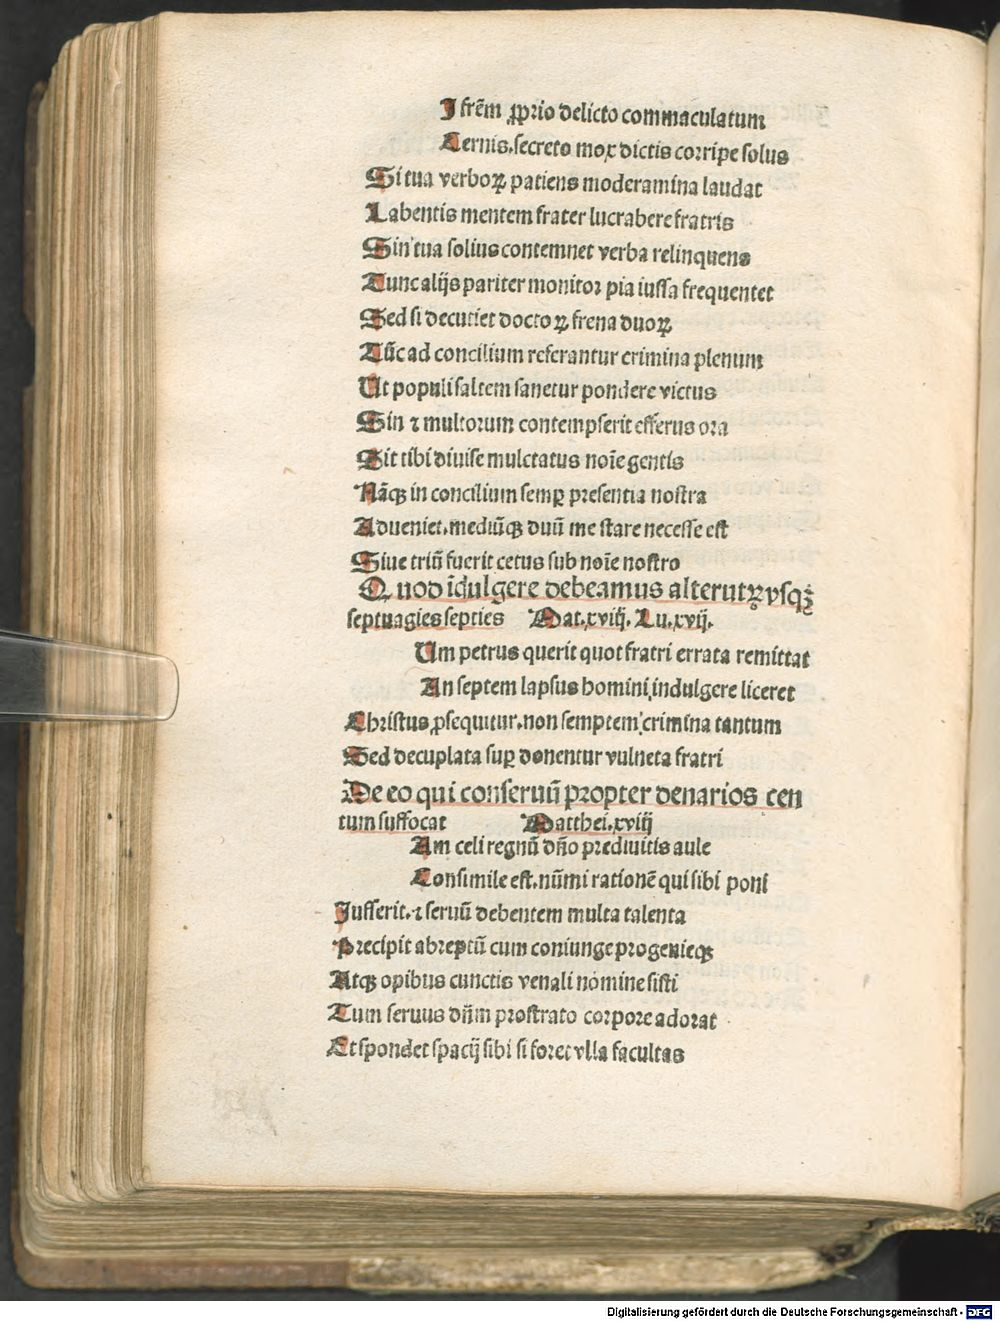 I frēm ꝓprio delicto commaculatum
Cernis.secreto mox dictis corripe solus
Si tua verboꝝ patiens moderamina laudat
Labentis mentem frater lucrabere fratris
Sin tua solius contemnet verba relinquens
Tunc alijs pariter monitor pia iussa frequentet
Sed si decutiet doctoꝝ frena duoꝝ
Tūc ad concilium referantur crimina plenum
Ut populi saltem sanetur pondere victus
Sin ⁊ multorum contempserit efferus ora
Sit tibi diuise mulctatus noīe gentis
Nāqꝫ in concilium semꝑ presentia nostra
Adueniet.mediūqꝫ duū me stare necesse est
Siue triū fuerit cetus sub noīe nostro
Quod īdulgere debeamus alterutꝝ vsqꝫ
septuagies septies Mat.xviij. Lu.xvij.
Um petrus querit quot fratri errata remittat
An septem lapsus homini indulgere liceret
Christus ꝓsequitur.non semptem crimina tantum
Sed decuplata suꝑ donentur vulneta fratri
De eo qui conseruū propter denarios cen
tum suffocat Matthei.xviij
Am celi regnū dño predivitis aule
Consimile est.nūmi rationē qui sibi poni
Iusserit.⁊ seruū debentem multa talenta
Precipit abreptū cum coniunge progenieqꝫ
Atqꝫ opibus cunctis venali nomine sisti
Tum seruus dñm prostrato corpore adorat
Et spondet spacij sibi si foret vlla facultas
Digitalisierung gefördert durch die Deutsche Forschungsgemeinschaft - DFG